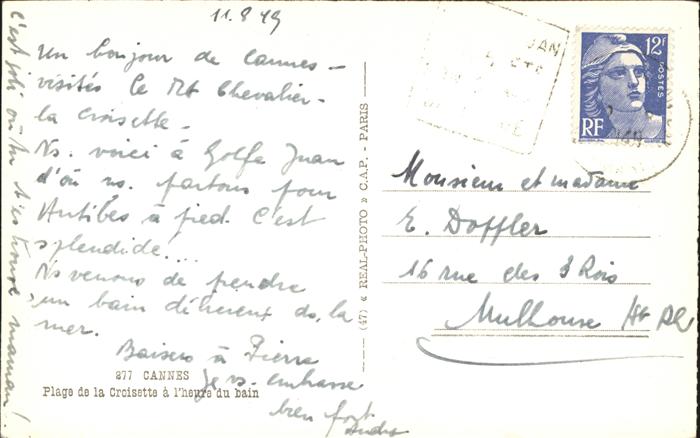 11.8.49
Un bonjour de Cannes -
visités le Mt Chevalier -
la Croisette -
Ns. voici à Golfe Juan
d'où ns. partons pour
Antibes à pied. C'est
splendide...
Ns venons de prendre
un bain délicieux ds. la
mer.
Baisers à Pierre
Je vs. embrasse
bien fort
c'est joli où tu t'es trouvé maman!
277 CANNES
Plage de la Croisette à l'heure du bain
(47) « REAL-PHOTO » C.A.P. - PARIS
JAN
12F
POSTES
RF
Monsieur et madame
E. Doffler
16 rue des 3 Rois
Mulhouse Ht Rh